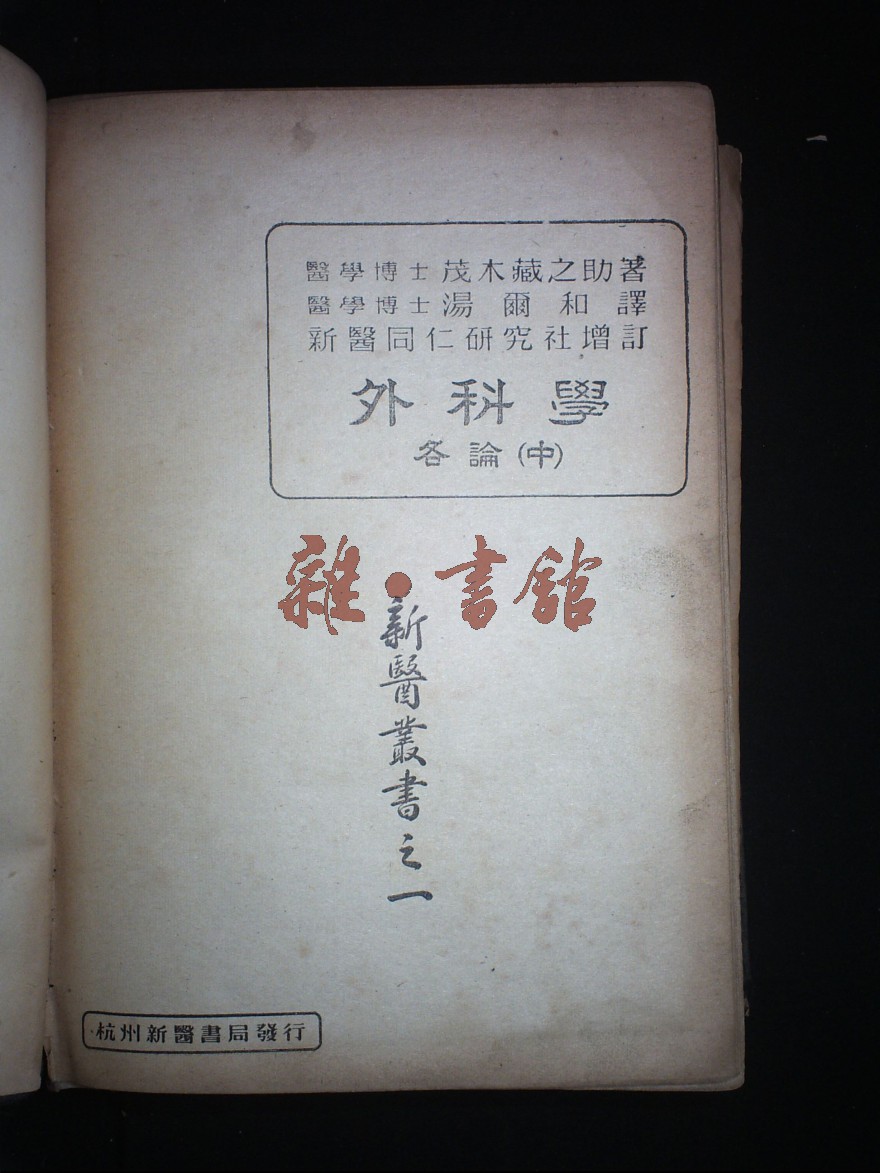 醫學博士茂木藏之助著
醫學博士湯爾和譯
新醫同仁研究社增訂
外科學
各論(中)
雜·書館
新醫叢書之一
杭州新醫書局發行